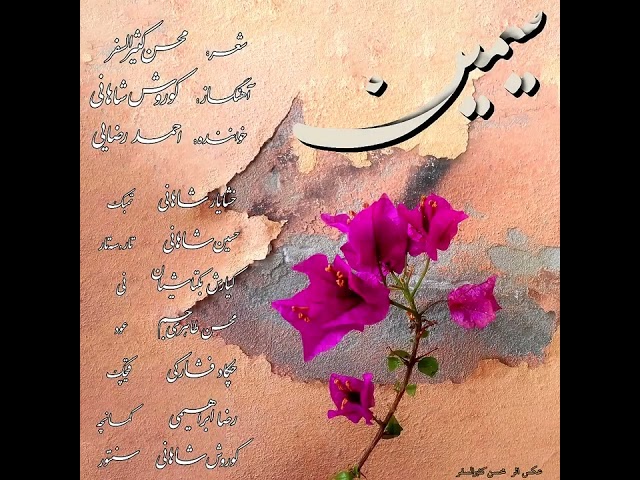 سیمین
شعر: محسن کثیرالسفر
آهنگساز: کوروش شاهانی
خواننده: احمد رضایی
خشایار شاهانی تمبک
حسین شاهانی تار، سه‌تار
کیارش یکتا نی
محسن طاهری عود
چکاد فشارکی قیچک
رضا ابراهیمی کمانچه
کوروش شاهانی سنتور
عکس از محسن کثیرالسفر